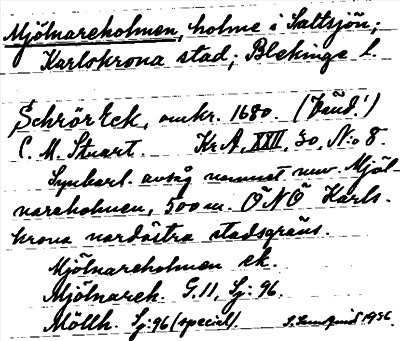 Mjölnareholmen, holme i Saltsjön;
Karlskrona stad; Blekinge l.
Schrör Eck, omkr. 1680. (Vänd!)
C. M. Stuart. KrA, XXII, 30, No 8.
Synbarl. avsåg namnet nuv. Mjöl-
nareholmen, 500 m. ÖNÖ Karls-
krona nordöstra stadsgräns.
Mjölnareholmen ek.
Mjölnareh. G. 11, Sj: 96.
Möllh. Sj: 96 (special). 1936.